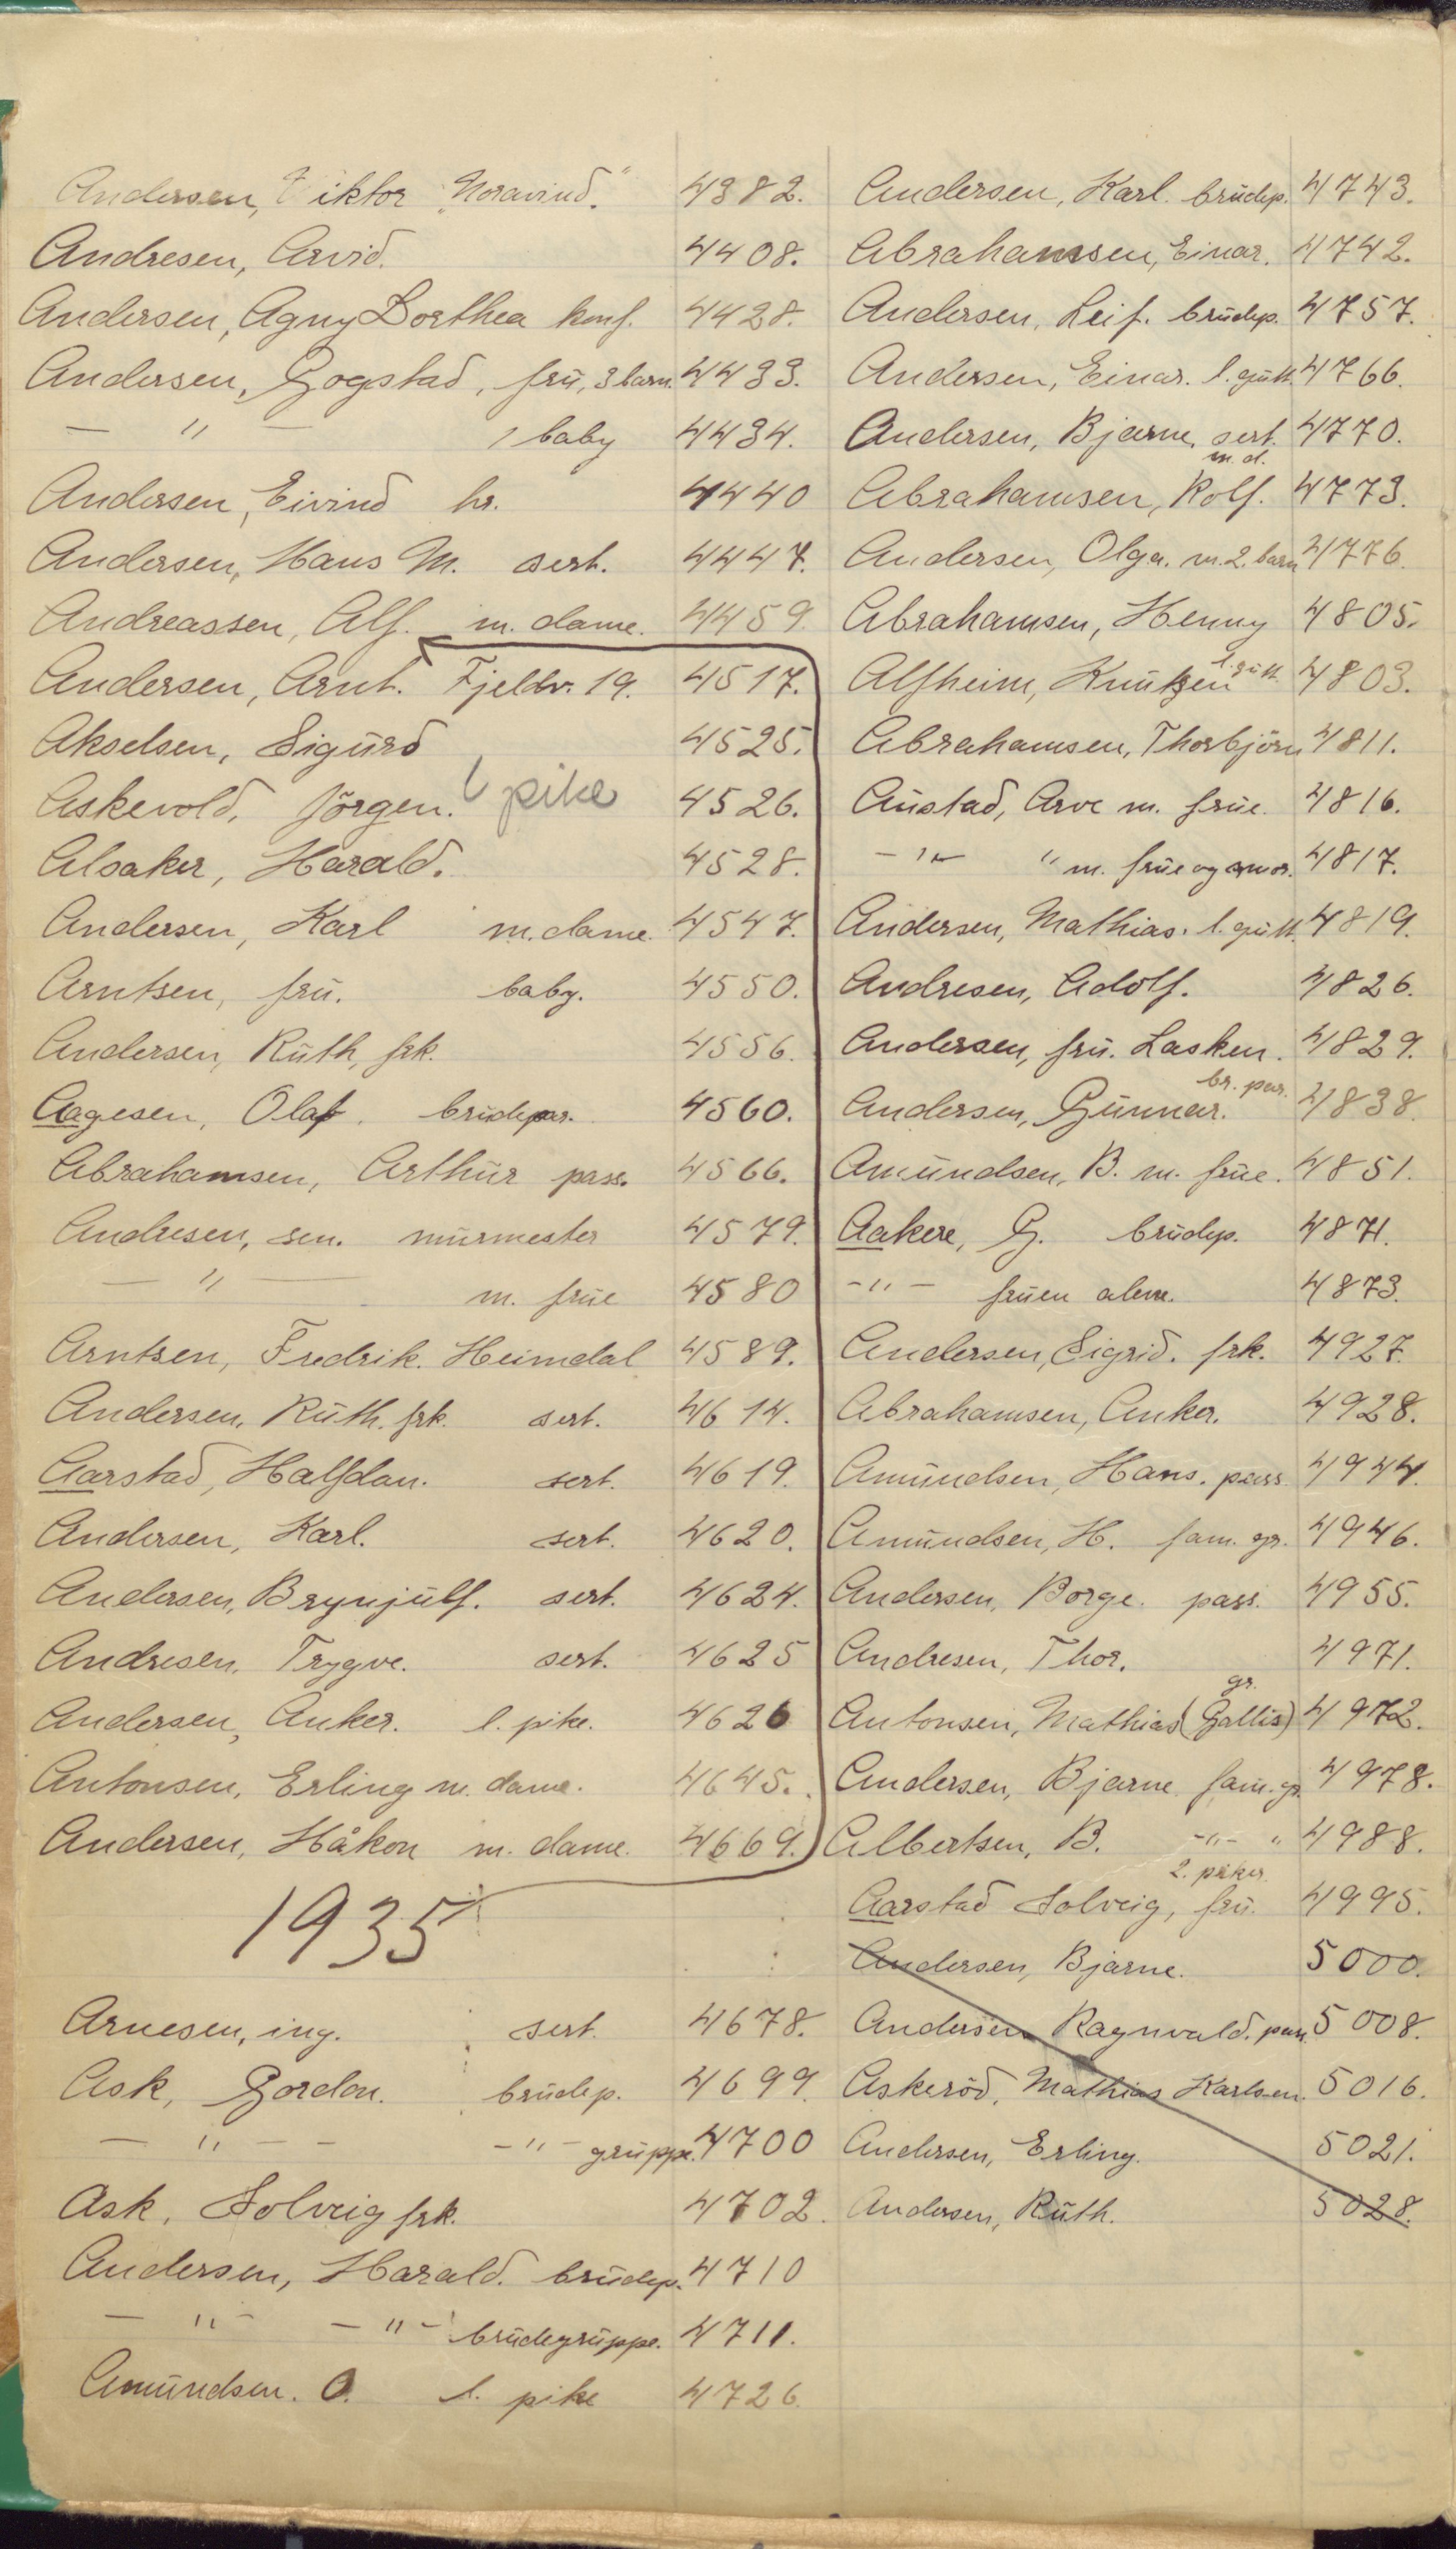 Andersen, Viktor "Noravind." 4382.
Andresen, Arvid. 4408.
Andersen, Agny Dorthea konf. 4428.
Andersen, Gogstad, frü, 3 barn. 4433.
— " — 1 baby 4434.
Andersen, Eivind hr. 4440
Andersen, Hans M. sert. 4447.
Andreassen, Alf. m. dame. 4459.
Andersen, Arnt. Fjeldv. 19. 4517.
Akselsen, Sigürd 4525.
Askevold, Jörgen. l pike 4526.
Alsaker, Harald. 4528.
Andersen, Karl m. dame. 4547.
Arntsen, frü. baby. 4550.
Andersen, Rüth, frk. 4556.
Aagesen, Olaf. brüdepar. 4560.
Abrahamsen, Arthür pass. 4566.
Andresen, sen. mürmester 4579.
— " — m. früe 4580
Arntsen, Fredrik. Heimdal 4589.
Andersen, Rüth. frk. sert. 4614.
Aarstad, Halfdan. sert. 4619.
Andersen, Karl. sert. 4620.
Andersen, Brynjülf. sert. 4624.
Andresen, Trygve. sert. 4625
Andersen, Anker. l. pike. 4626
Antonsen, Erling m. dame. 4645.
Andersen, Håkon m. dame. 4669.
1935
Arnesen, ing. sert. 4678.
Ask, Gordon. brüdep. 4699.
— " — — " — grüppe. 4700
Ask, Solveig frk. 4702.
Andersen, Harald. brüdep. 4710
— " — — " — brüdegrüppe. 4711.
Amündsen. O. l. pike 4726.
Andersen, Karl. brüdep. 4743.
Abrahamsen, Einar. 4742.
Andersen, Leif. brüdep. 4757.
Andersen, Einar. l. gütt. 4766.
Andersen, Bjarne, sert. 4770.
m. d.
Abrahamsen, Rolf. 4773.
Andersen, Olga. m. 2. barn 4776.
Abrahamsen, Henny 4805.
l. gütt.
Alfheim, Knützen 4803.
Abrahamsen, Thorbjörn 4811.
Aüstad, Arve m. früe. 4816.
— " — " m. früe og mor. 4817.
Andersen, Mathias. l. gütt. 4819.
Andresen, Adolf. 4826.
Andersen, frü. Lasken. 4829.
br. par.
Andersen, Günnar. 4838.
Amündsen, B. m. früe. 4851.
Aakere, G. brüdep. 4871.
— " — früen alene. 4873.
Andersen, Sigrid. frk. 4927.
Abrahamsen, Anker. 4928.
Amündsen, Hans. pass. 4944.
Amündsen, H. fam. gr. 4946.
Andersen, Borge. pass. 4955.
Andresen, Thor. 4971.
gr.
Antonsen, Mathias (Gallis) 4972.
Andersen, Bjarne fam. gr. 4978.
Albertsen, B. — " — " 4988.
2. piker.
Aarstad Solveig, frü. 4995.
Andersen, Bjarne. 5000.
Andersen Ragnvald. pass. 5008.
Askeröd, Mathias Karlsen. 5016.
Andersen, Erling. 5021.
Andersen, Rüth. 5028.